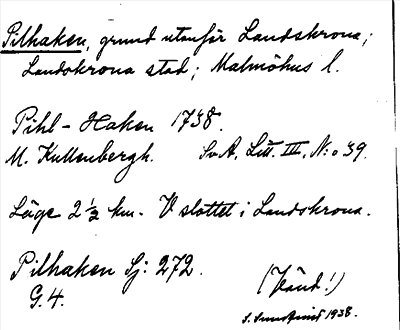 Pilhaken, grund utanför Landskrona;
Landskrona stad; Malmöhus l.
Pihl-Haken 1738.
M. Kullenbergh. SvA, Litt. III, N:o 39.
Läge 2 ½ km. V slottet i Landskrona.
Pilhaken Sj: 272.
G. 4. (Vänd!)
1938.